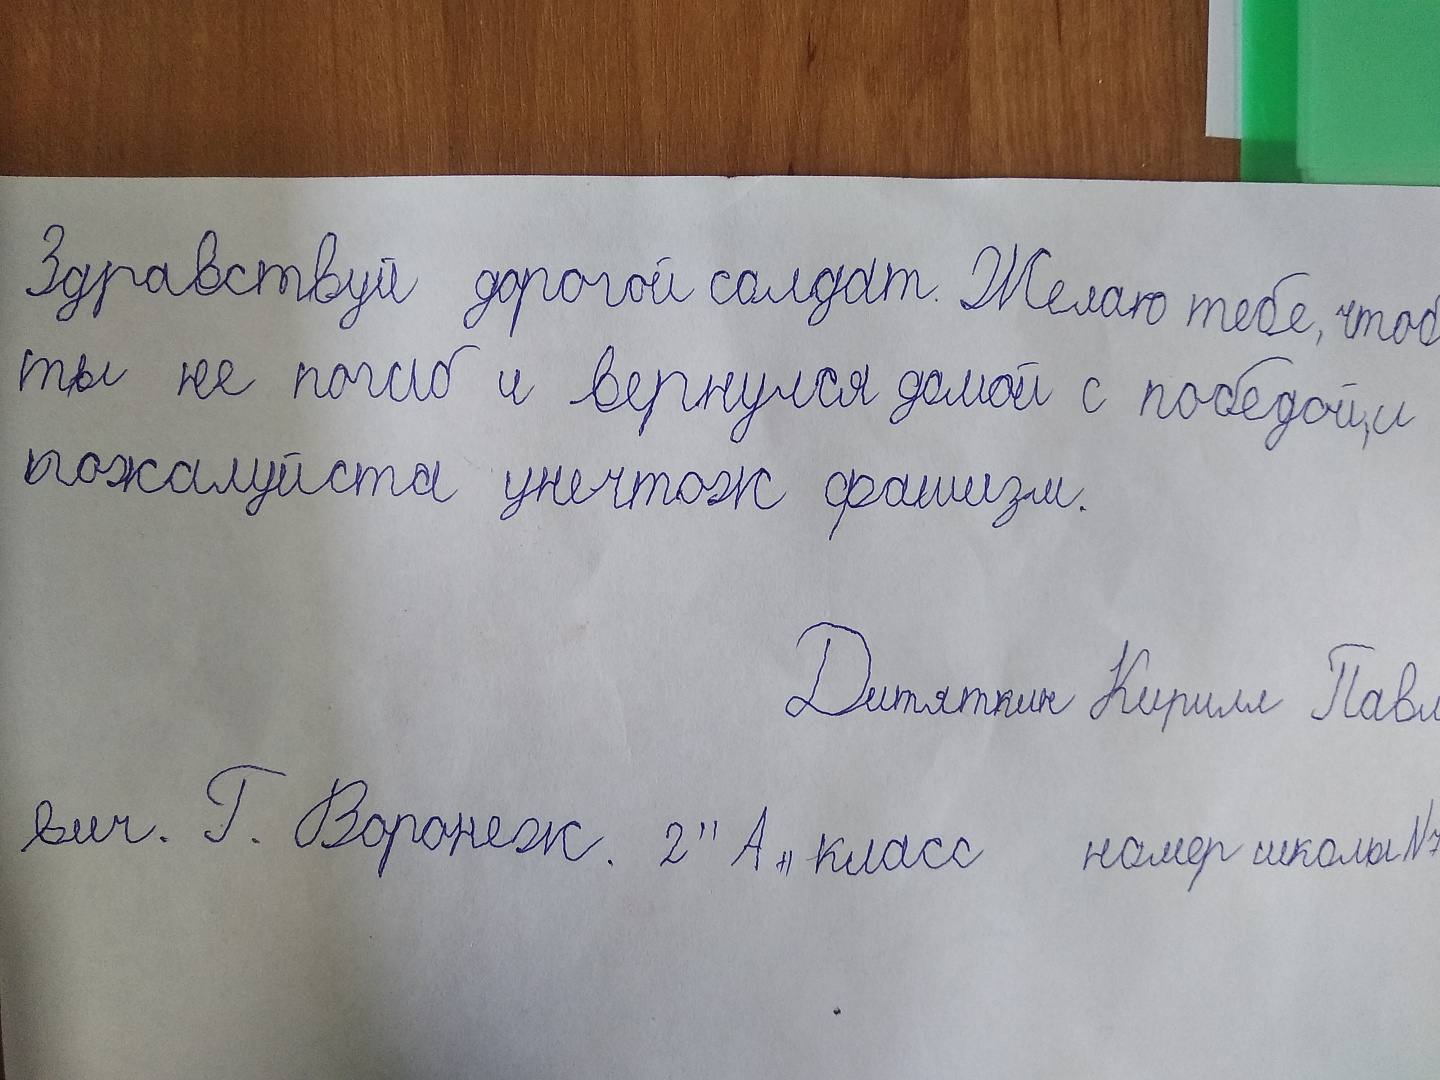 Здравствуй дорогой солдат. Желаю тебе, чтоб
ты не погиб и вернулся домой с победой, и
пожалуйста унечтож фашизм.
Дитяткин Кирилл Павл
вич. Г. Воронеж. 2 "А„ класс номер школы N7